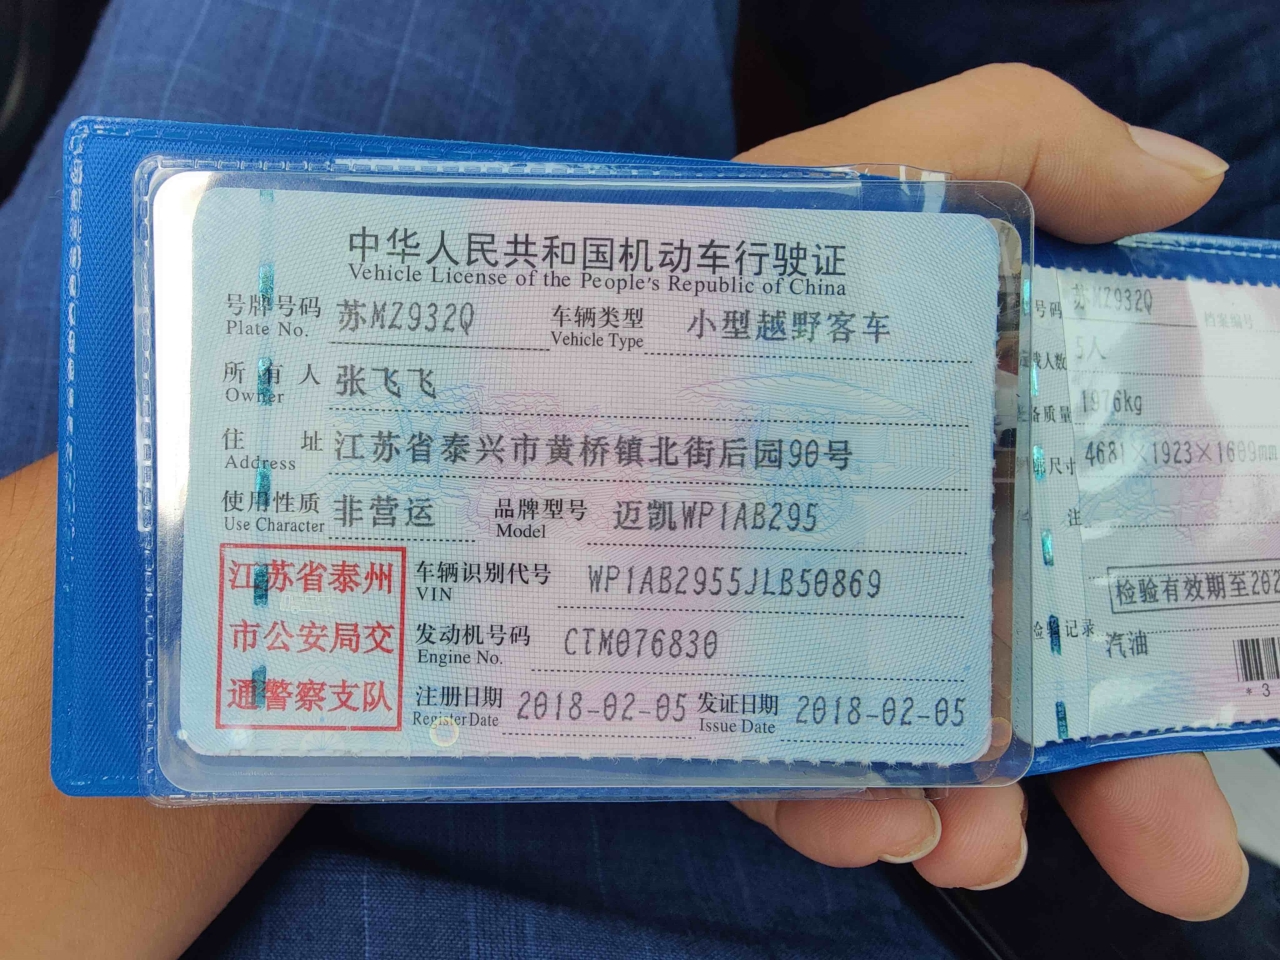 中华人民共和国机动车行驶证
Vehicle License of the People's Republic of China
号牌号码 苏MZ932Q 车辆类型 小型越野客车
Plate No. Vehicle Type
所有人 张飞飞
Owner
住址 江苏省泰兴市黄桥镇北街后园90号
Address
使用性质 非营运 品牌型号 迈凯WP1AB295
Use Character Model
江苏省泰州
市公安局交
通警察支队
车辆识别代号 WP1AB2955JLB50869
VIN
发动机号码 CTM076830
Engine No.
注册日期 2018-02-05 发证日期 2018-02-05
Register Date Issue Date
号码 苏MZ932Q 档案编号
人数 5人
备质量 1976kg
尺寸 4681×1923×1609mm
注
检验有效期至202
检验记录
汽油
*3